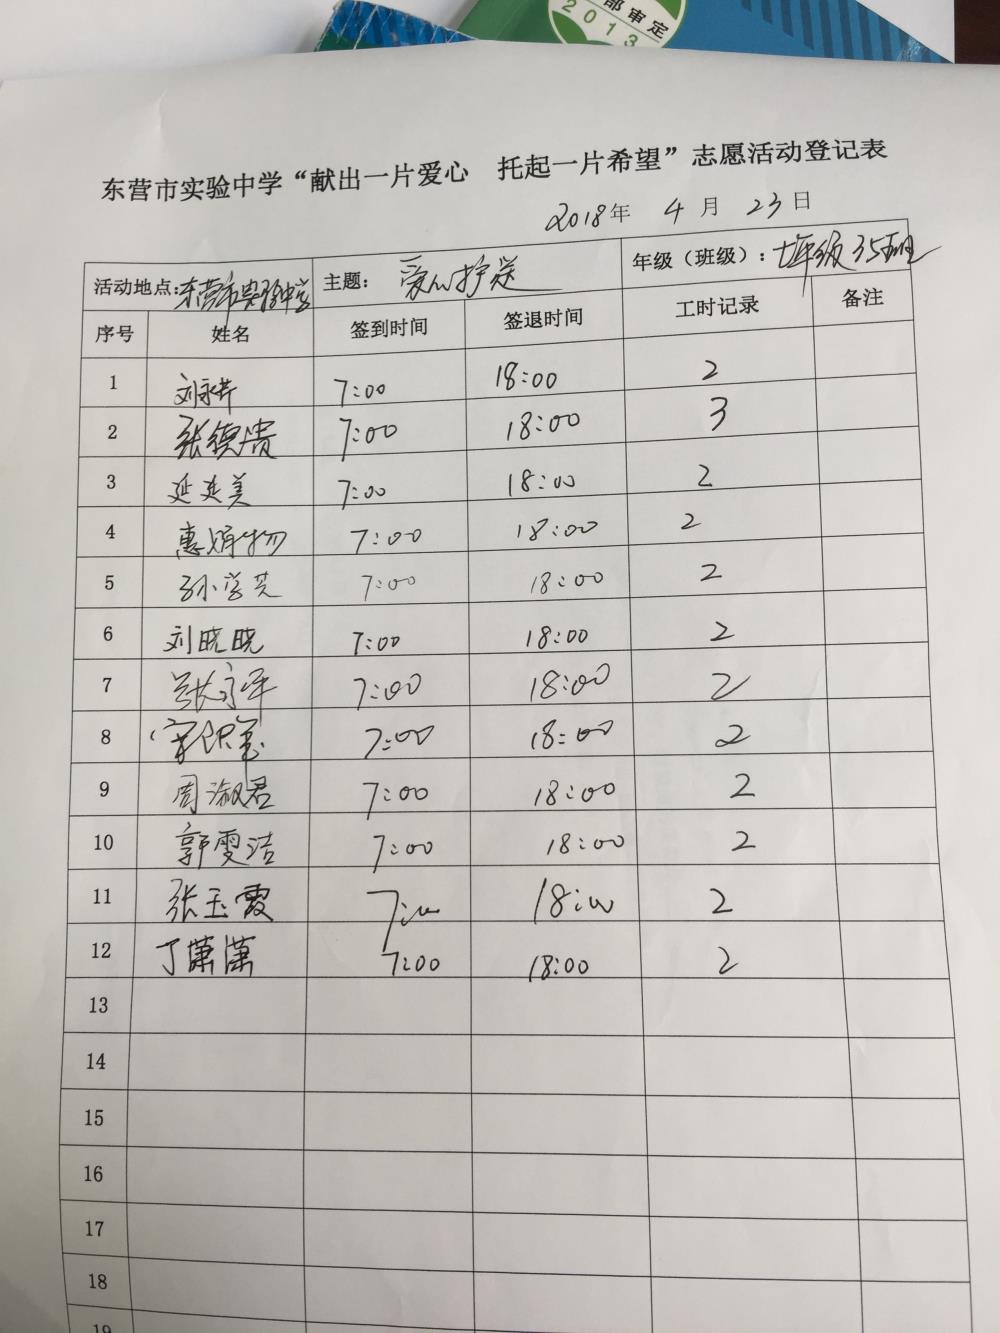 部审定
2013
东营市实验中学“献出一片爱心 托起一片希望”志愿活动登记表
2018年 4月23日
活动地点:东营市实验中学 主题：爱心护送 年级（班级）：七年级35班
序号 姓名 签到时间 签退时间 工时记录 备注
1 刘永芹 7:00 18:00 2
2 张德贵 7:00 18:00 3
3 延延美 7:00 18:00 2
4 惠娟 7:00 18:00 2
5 孙学芝 7:00 18:00 2
6 刘晓晓 7:00 18:00 2
7 张永平 7:00 18:00 2
8 7:00 18:00 2
9 周淑君 7:00 18:00 2
10 郭雯洁 7:00 18:00 2
11 张玉霞 7:00 18:00 2
12 丁潇潇 7:00 18:00 2
13
14
15
16
17
18
19